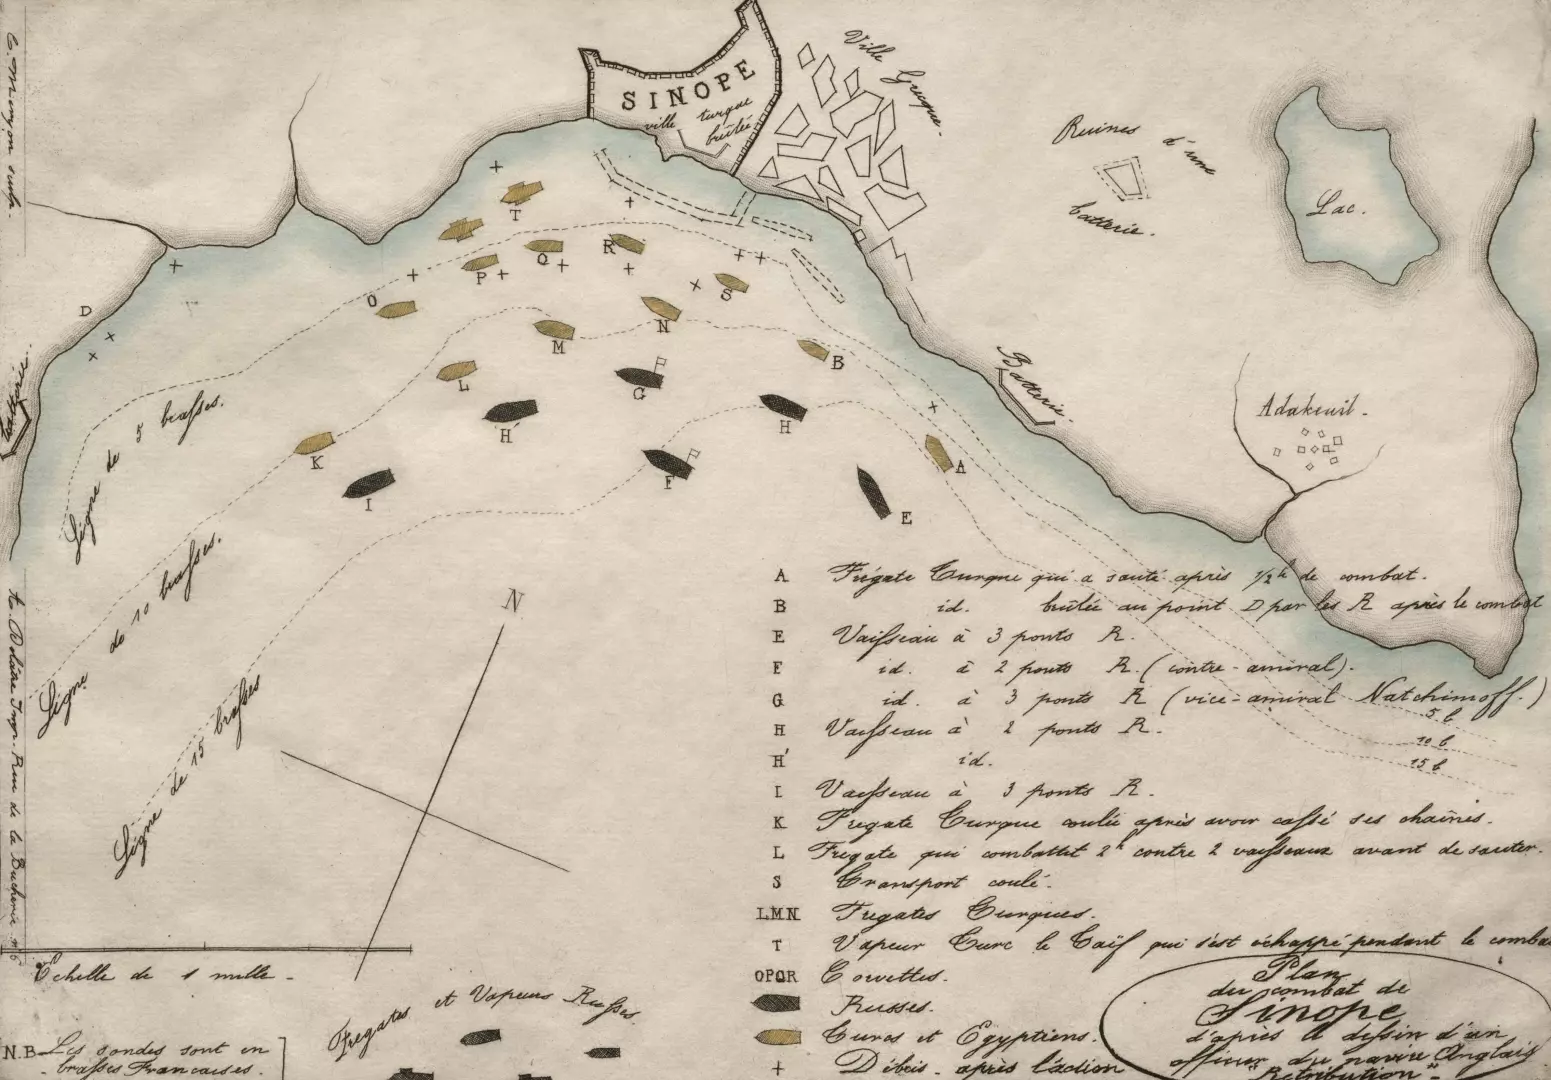 SINOPE
ville turque
brûlée
Ville Grecque.
Ruines d'une
batterie.
Lac.
T
Q
R
P
S
O
N
M
D
B
L
G
Batterie
Batterie.
H'
H
Adakeuil.
K
F
A
I
E
Ligne de 5 brasses.
Ligne de 10 brasses.
Ligne de 15 brasses
N
A Frégate Turque qui a sauté après 1/2 h de combat.
B id. brûlée au point D par les R après le combat
E Vaisseau à 3 ponts R.
F id. à 2 ponts R. (contre-amiral).
G id. à 3 ponts R (vice-amiral Natchimoff.)
5 b
H Vaisseau à 2 ponts R.
10 b
H' id.
15 b
I Vaisseau à 3 ponts R.
K Fregate Turque coulée après avoir cassé ses chaînes.
L Fregate qui combattit 2 h contre 2 vaisseaux avant de sauter.
S Transport coulé.
LMN Fregates Turques.
T Vapeur Turc le Taïf qui s'est échappé pendant le comba
OPQR Corvettes.
Russes.
Turcs et Egyptiens.
+ Débris après l'action
Echelle de 1 mille
Fregates et Vapeurs Russes.
N.B. Les sondes sont en
brasses Francaises.
Plan
du combat de
Sinope
d'après le dessin d'un
officier du navire Anglais
"Retribution"
Imp. Rue de la Bucherie